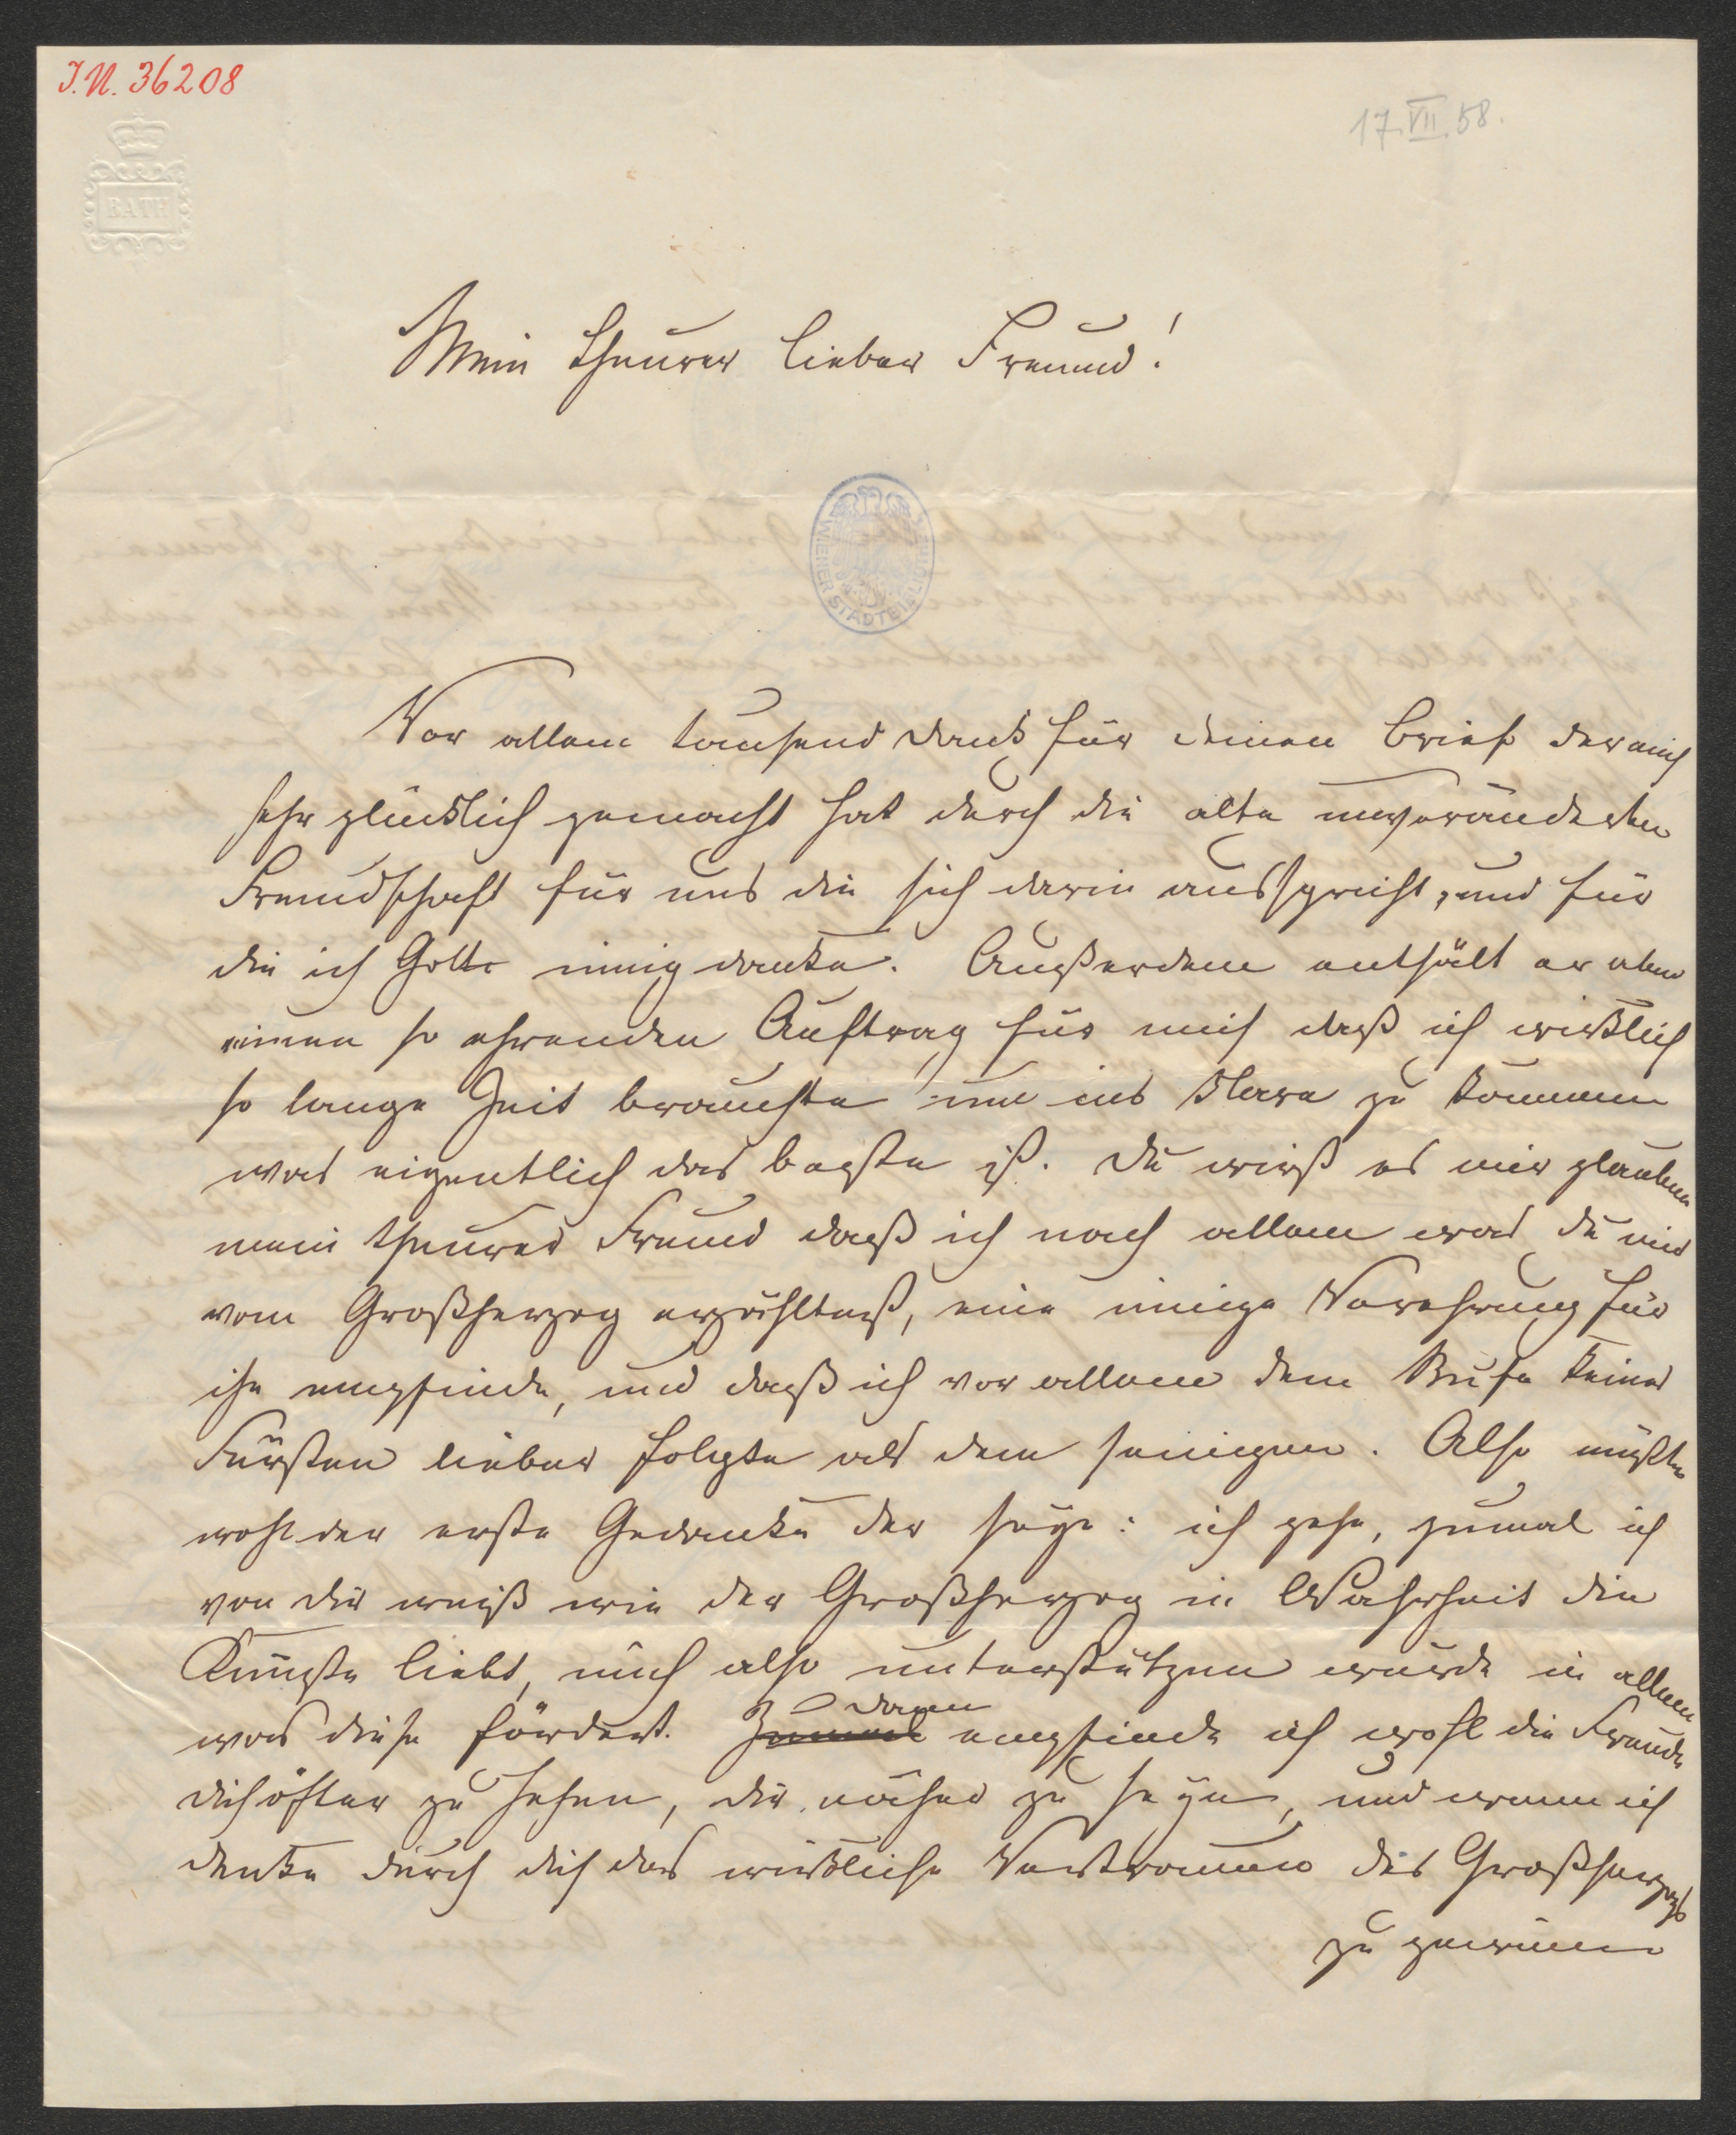 J.N. 36208
17.VII.58.
BATH
Mein theurer lieber Freund!
WIENER STADTBIBLIOTHEK
Vor allem tausend Dank für deinen Brief der mich
sehr glücklich gemacht hat durch die alte unveränderte
Freundschaft für uns die sich darin ausspricht, und für
die ich Gott innig danke. Außerdem enthält er aber
einen so ehrenden Auftrag für mich daß ich wirklich
so lange Zeit brauchte um ins Klare zu kommen
was eigentlich das beste ist. Du wirst es mir glauben
mein theurer Freund daß ich nach allem was du mir
vom Großherzog erzähltest, eine innige Verehrung für
ihn empfinde, und daß ich vor allem dem Rufe keines
Fürsten lieber folgte als dem seinigen. Also müßte
wohl der erste Gedanke der seyn: ich gehe, zumal ich
von dir weiß wie der Großherzog in Wahrheit die
Künste liebt, mich also unterstützen würde in allem
was diese fördert. Zumal dann empfinde ich wohl die Freude
dich öfter zu sehen, dir näher zu seyn, und wenn ich
denke durch dich das wirkliche Vertrauen des Großherzogs
zu gewinnen